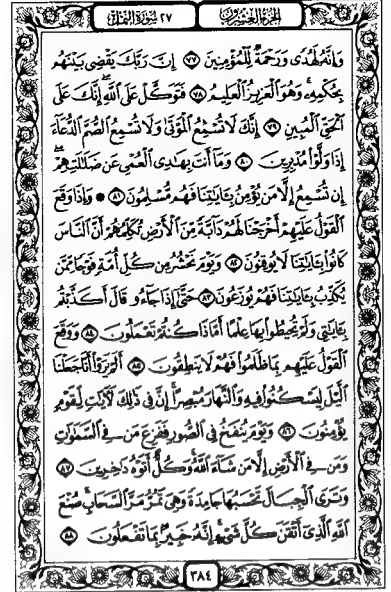 الجزء العشرون
٢٧ سورة النمل
وَإِنَّهُ لَهُدًى وَرَحْمَةٌ لِّلْمُؤْمِنِينَ ٧٧ إِنَّ رَبَّكَ يَقْضِى بَيْنَهُم
بِحُكْمِهِۦ وَهُوَ ٱلْعَزِيزُ ٱلْعَلِيمُ ٧٨ فَتَوَكَّلْ عَلَى ٱللَّهِ إِنَّكَ عَلَى
ٱلْحَقِّ ٱلْمُبِينِ ٧٩ إِنَّكَ لَا تُسْمِعُ ٱلْمَوْتَىٰ وَلَا تُسْمِعُ ٱلصُّمَّ ٱلدُّعَآءَ
إِذَا وَلَّوْا۟ مُدْبِرِينَ ٨٠ وَمَآ أَنتَ بِهَٰدِى ٱلْعُمْىِ عَن ضَلَٰلَتِهِمْ
إِن تُسْمِعُ إِلَّا مَن يُؤْمِنُ بِـَٔايَٰتِنَا فَهُم مُّسْلِمُونَ ٨١ ● وَإِذَا وَقَعَ
ٱلْقَوْلُ عَلَيْهِمْ أَخْرَجْنَا لَهُمْ دَآبَّةً مِّنَ ٱلْأَرْضِ تُكَلِّمُهُمْ أَنَّ ٱلنَّاسَ
كَانُوا۟ بِـَٔايَٰتِنَا لَا يُوقِنُونَ ٨٢ وَيَوْمَ نَحْشُرُ مِن كُلِّ أُمَّةٍ فَوْجًا مِّمَّن
يُكَذِّبُ بِـَٔايَٰتِنَا فَهُمْ يُوزَعُونَ ٨٣ حَتَّىٰٓ إِذَا جَآءُو قَالَ أَكَذَّبْتُم
بِـَٔايَٰتِى وَلَمْ تُحِيطُوا۟ بِهَا عِلْمًا أَمَّاذَا كُنتُمْ تَعْمَلُونَ ٨٤ وَوَقَعَ
ٱلْقَوْلُ عَلَيْهِم بِمَا ظَلَمُوا۟ فَهُمْ لَا يَنطِقُونَ ٨٥ أَلَمْ يَرَوْا۟ أَنَّا جَعَلْنَا
ٱلَّيْلَ لِيَسْكُنُوا۟ فِيهِ وَٱلنَّهَارَ مُبْصِرًا إِنَّ فِى ذَٰلِكَ لَـَٔايَٰتٍ لِّقَوْمٍ
يُؤْمِنُونَ ٨٦ وَيَوْمَ يُنفَخُ فِى ٱلصُّورِ فَفَزِعَ مَن فِى ٱلسَّمَٰوَٰتِ
وَمَن فِى ٱلْأَرْضِ إِلَّا مَن شَآءَ ٱللَّهُ وَكُلٌّ أَتَوْهُ دَٰخِرِينَ ٨٧
وَتَرَى ٱلْجِبَالَ تَحْسَبُهَا جَامِدَةً وَهِىَ تَمُرُّ مَرَّ ٱلسَّحَابِ صُنْعَ
ٱللَّهِ ٱلَّذِىٓ أَتْقَنَ كُلَّ شَىْءٍ إِنَّهُۥ خَبِيرٌۢ بِمَا تَفْعَلُونَ ٨٨
٣٨٤